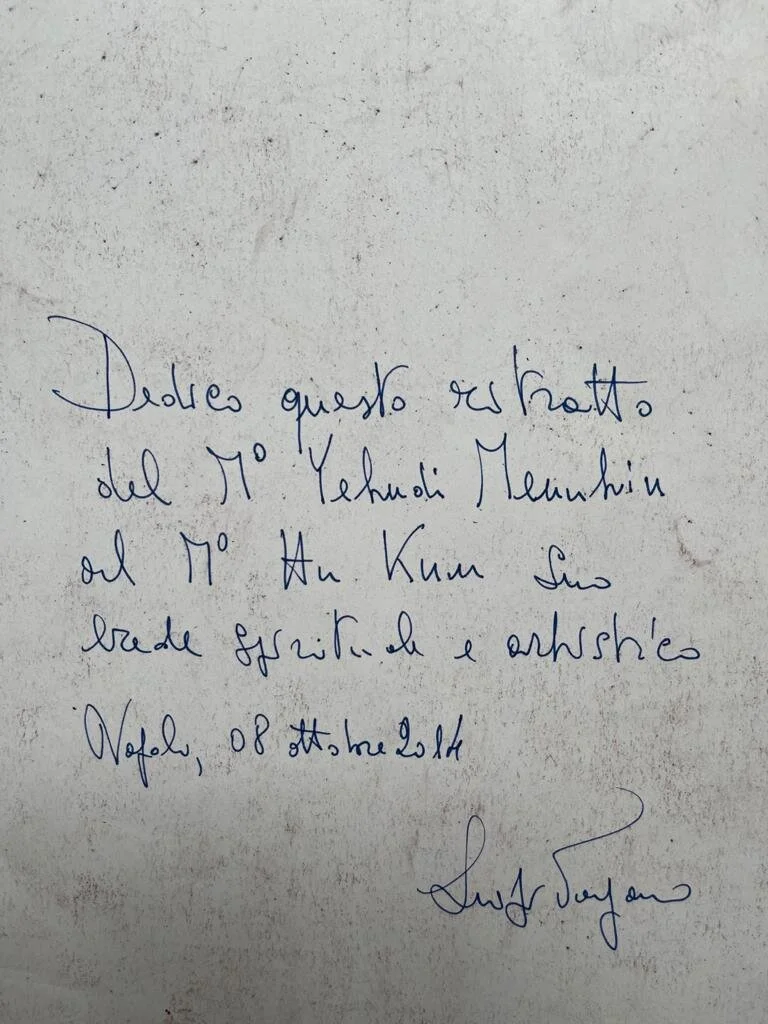 Dedico questo ritratto
del M° Yehudi Menuhin
al M° Hu Kun suo
erede spirituale e artistico
Napoli, 08 ottobre 2014
Luigi